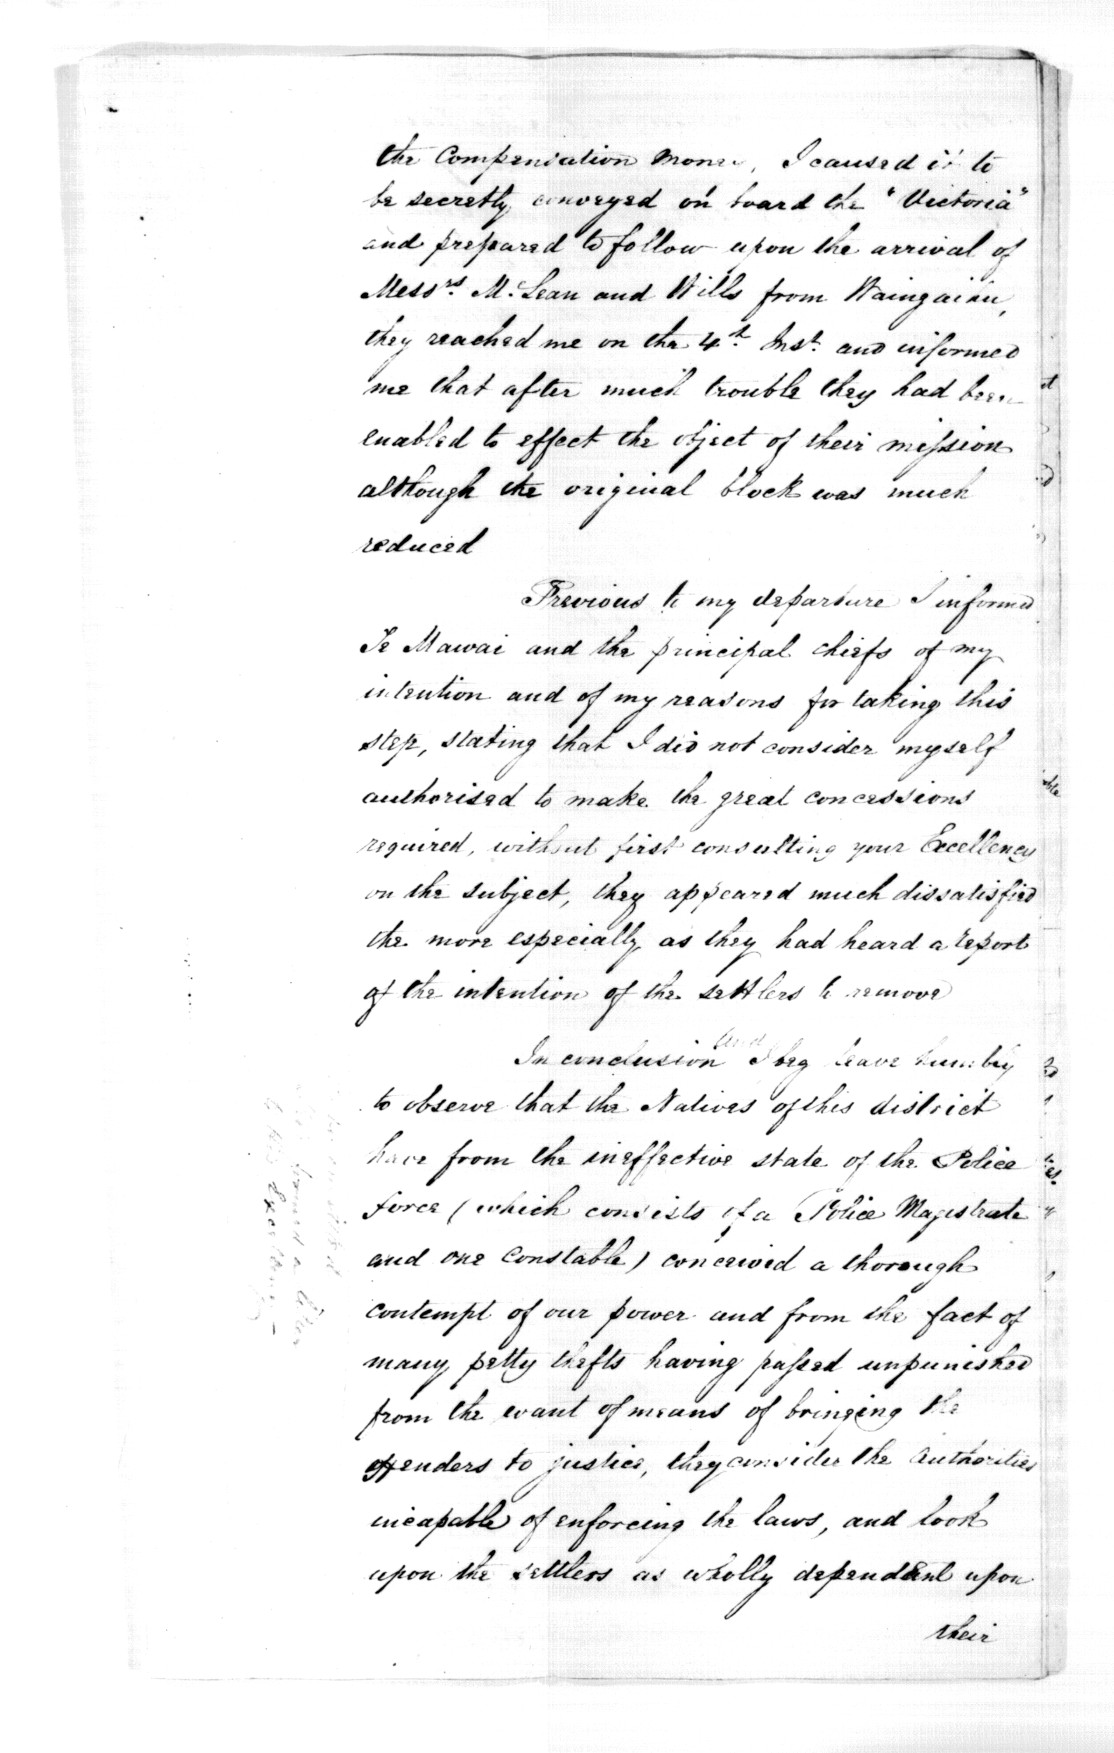 the Compensation Money, I caused it to
be secretly conveyed on board the "Victoria"
and prepared to follow upon the arrival of
Messrs. McLean and Wills from Waingaihu,
they reached me on the 4th. Inst. and informed
me that after much trouble they had been
enabled to effect the object of their mission
although the original block was much
reduced
Previous to my departure I informed
Te Mawai and the principal chiefs of my
intention and of my reasons for taking this
step, stating that I did not consider myself
authorised to make the great concessions
required, without first consulting your Excellency
on the subject, they appeared much dissatisfied
the more especially as they had heard a report
of the intention of the settlers to remove
In conclusion and I beg leave humbly
to observe that the Natives of this district
have from the ineffective state of the Police
force (which consists of a Police Magistrate
and one Constable) conceived a thorough
contempt of our power and from the fact of
many petty thefts having passed unpunished
from the want of means of bringing the
offenders to justice, they consider the authorities
incapable of enforcing the laws, and look
upon the settlers as wholly dependent upon
their